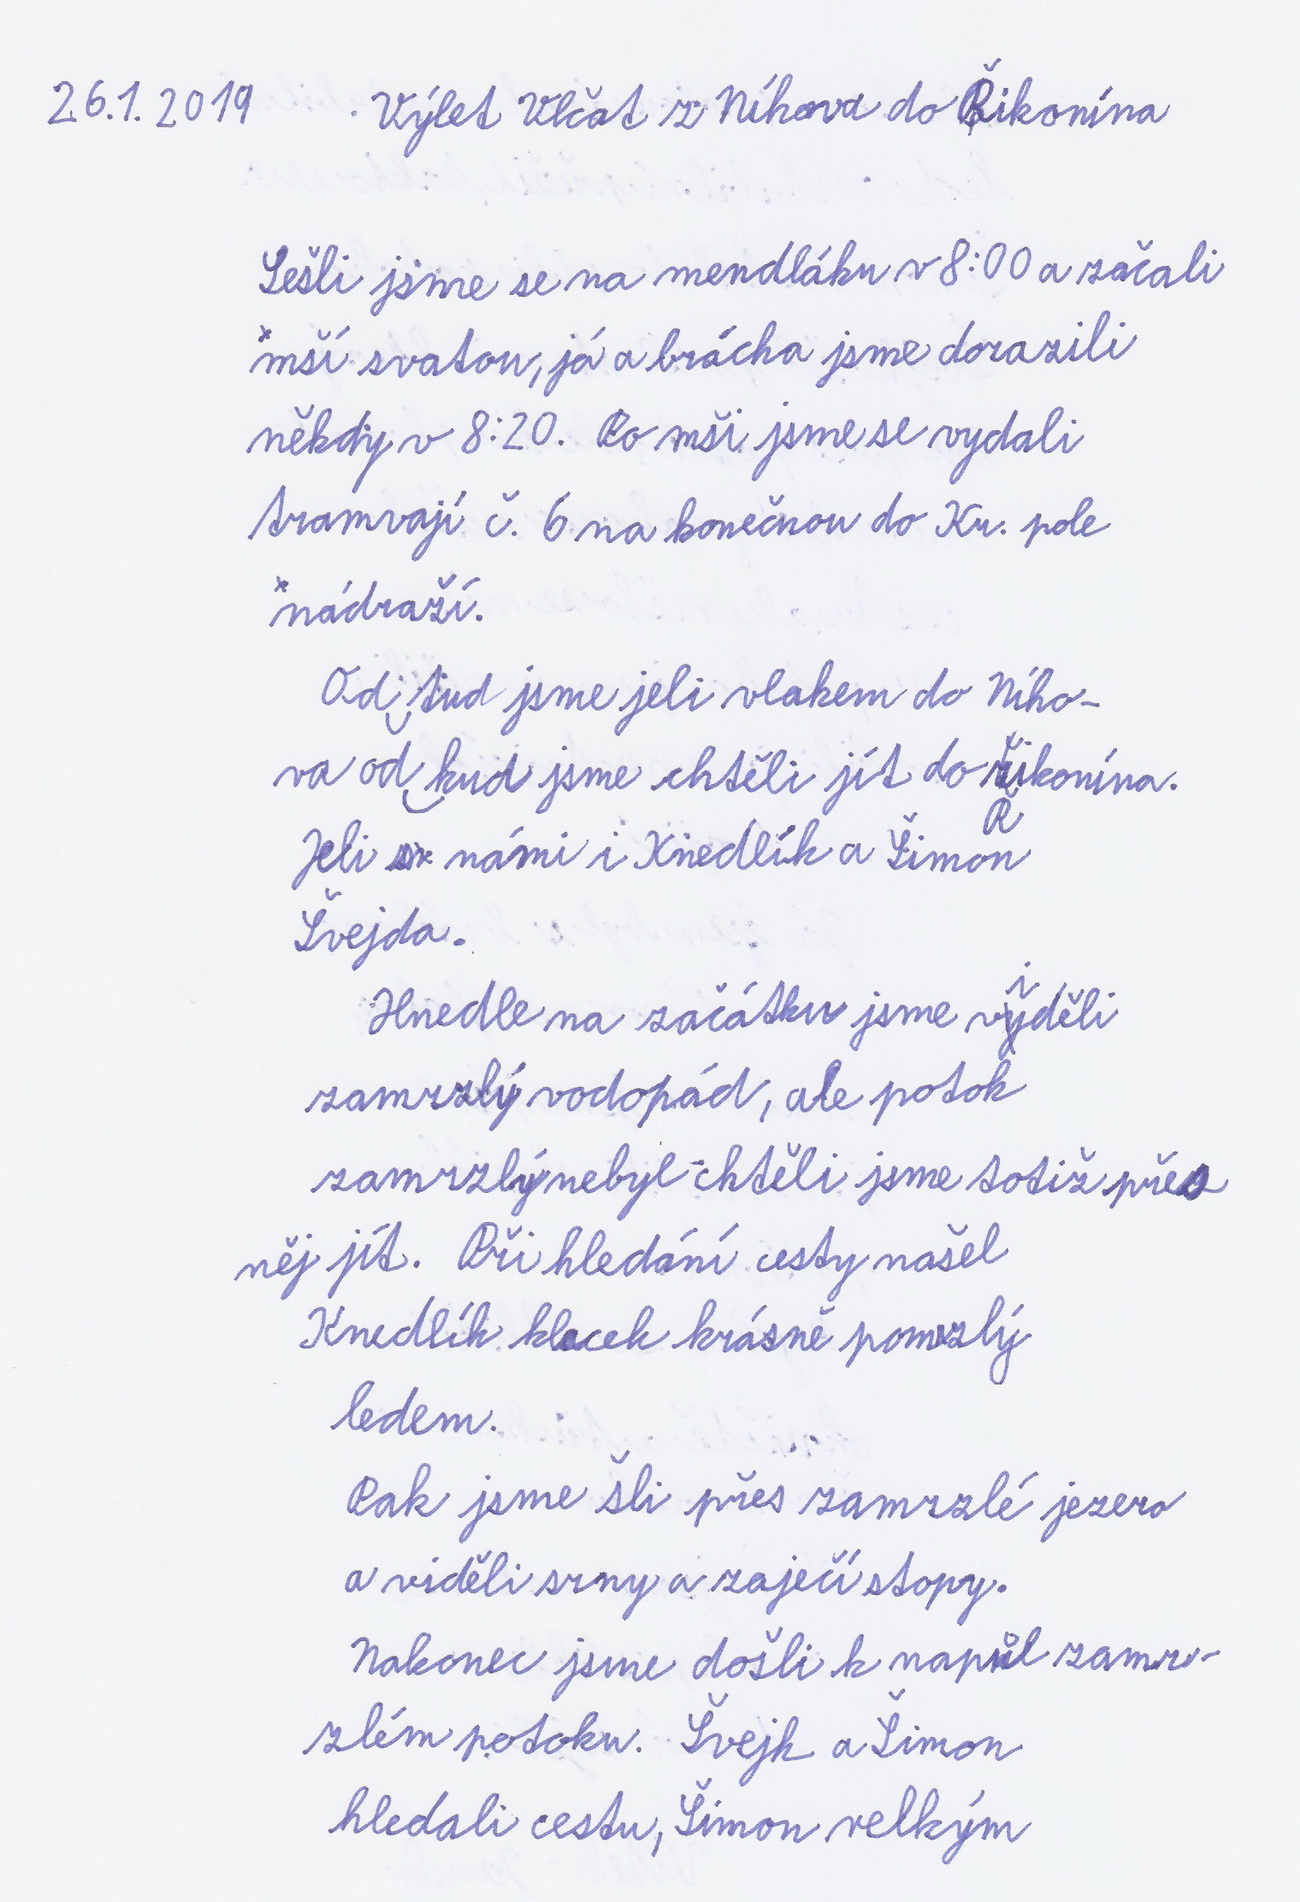 26.1.2019 Výlet Vlčat z Níhova do Řikonína
Sešli jsme se na mendláku v 8:00 a začali
mší svatou, já a brácha jsme dorazili
někdy v 8:20. Po mši jsme se vydali
tramvají č. 6 na konečnou do Kr. pole
nádraží.
Od tud jsme jeli vlakem do Ního-
va od kud jsme chtěli jít do Řikonína.
Jeli s námi i Knedlík a Šimon
Švejda.
Hnedle na začátku jsme viděli
zamrzlý vodopád, ale potok
zamrzlý nebyl - chtěli jsme totiž přes
něj jít. Při hledání cesty našel
Knedlík klacek krásně pomrzlý
ledem.
Pak jsme šli přes zamrzlé jezero
a viděli srny a zaječí stopy.
Nakonec jsme došli k napůl zamr-
zlém potoku. Švejk a Šimon
hledali cestu, Šimon velkým